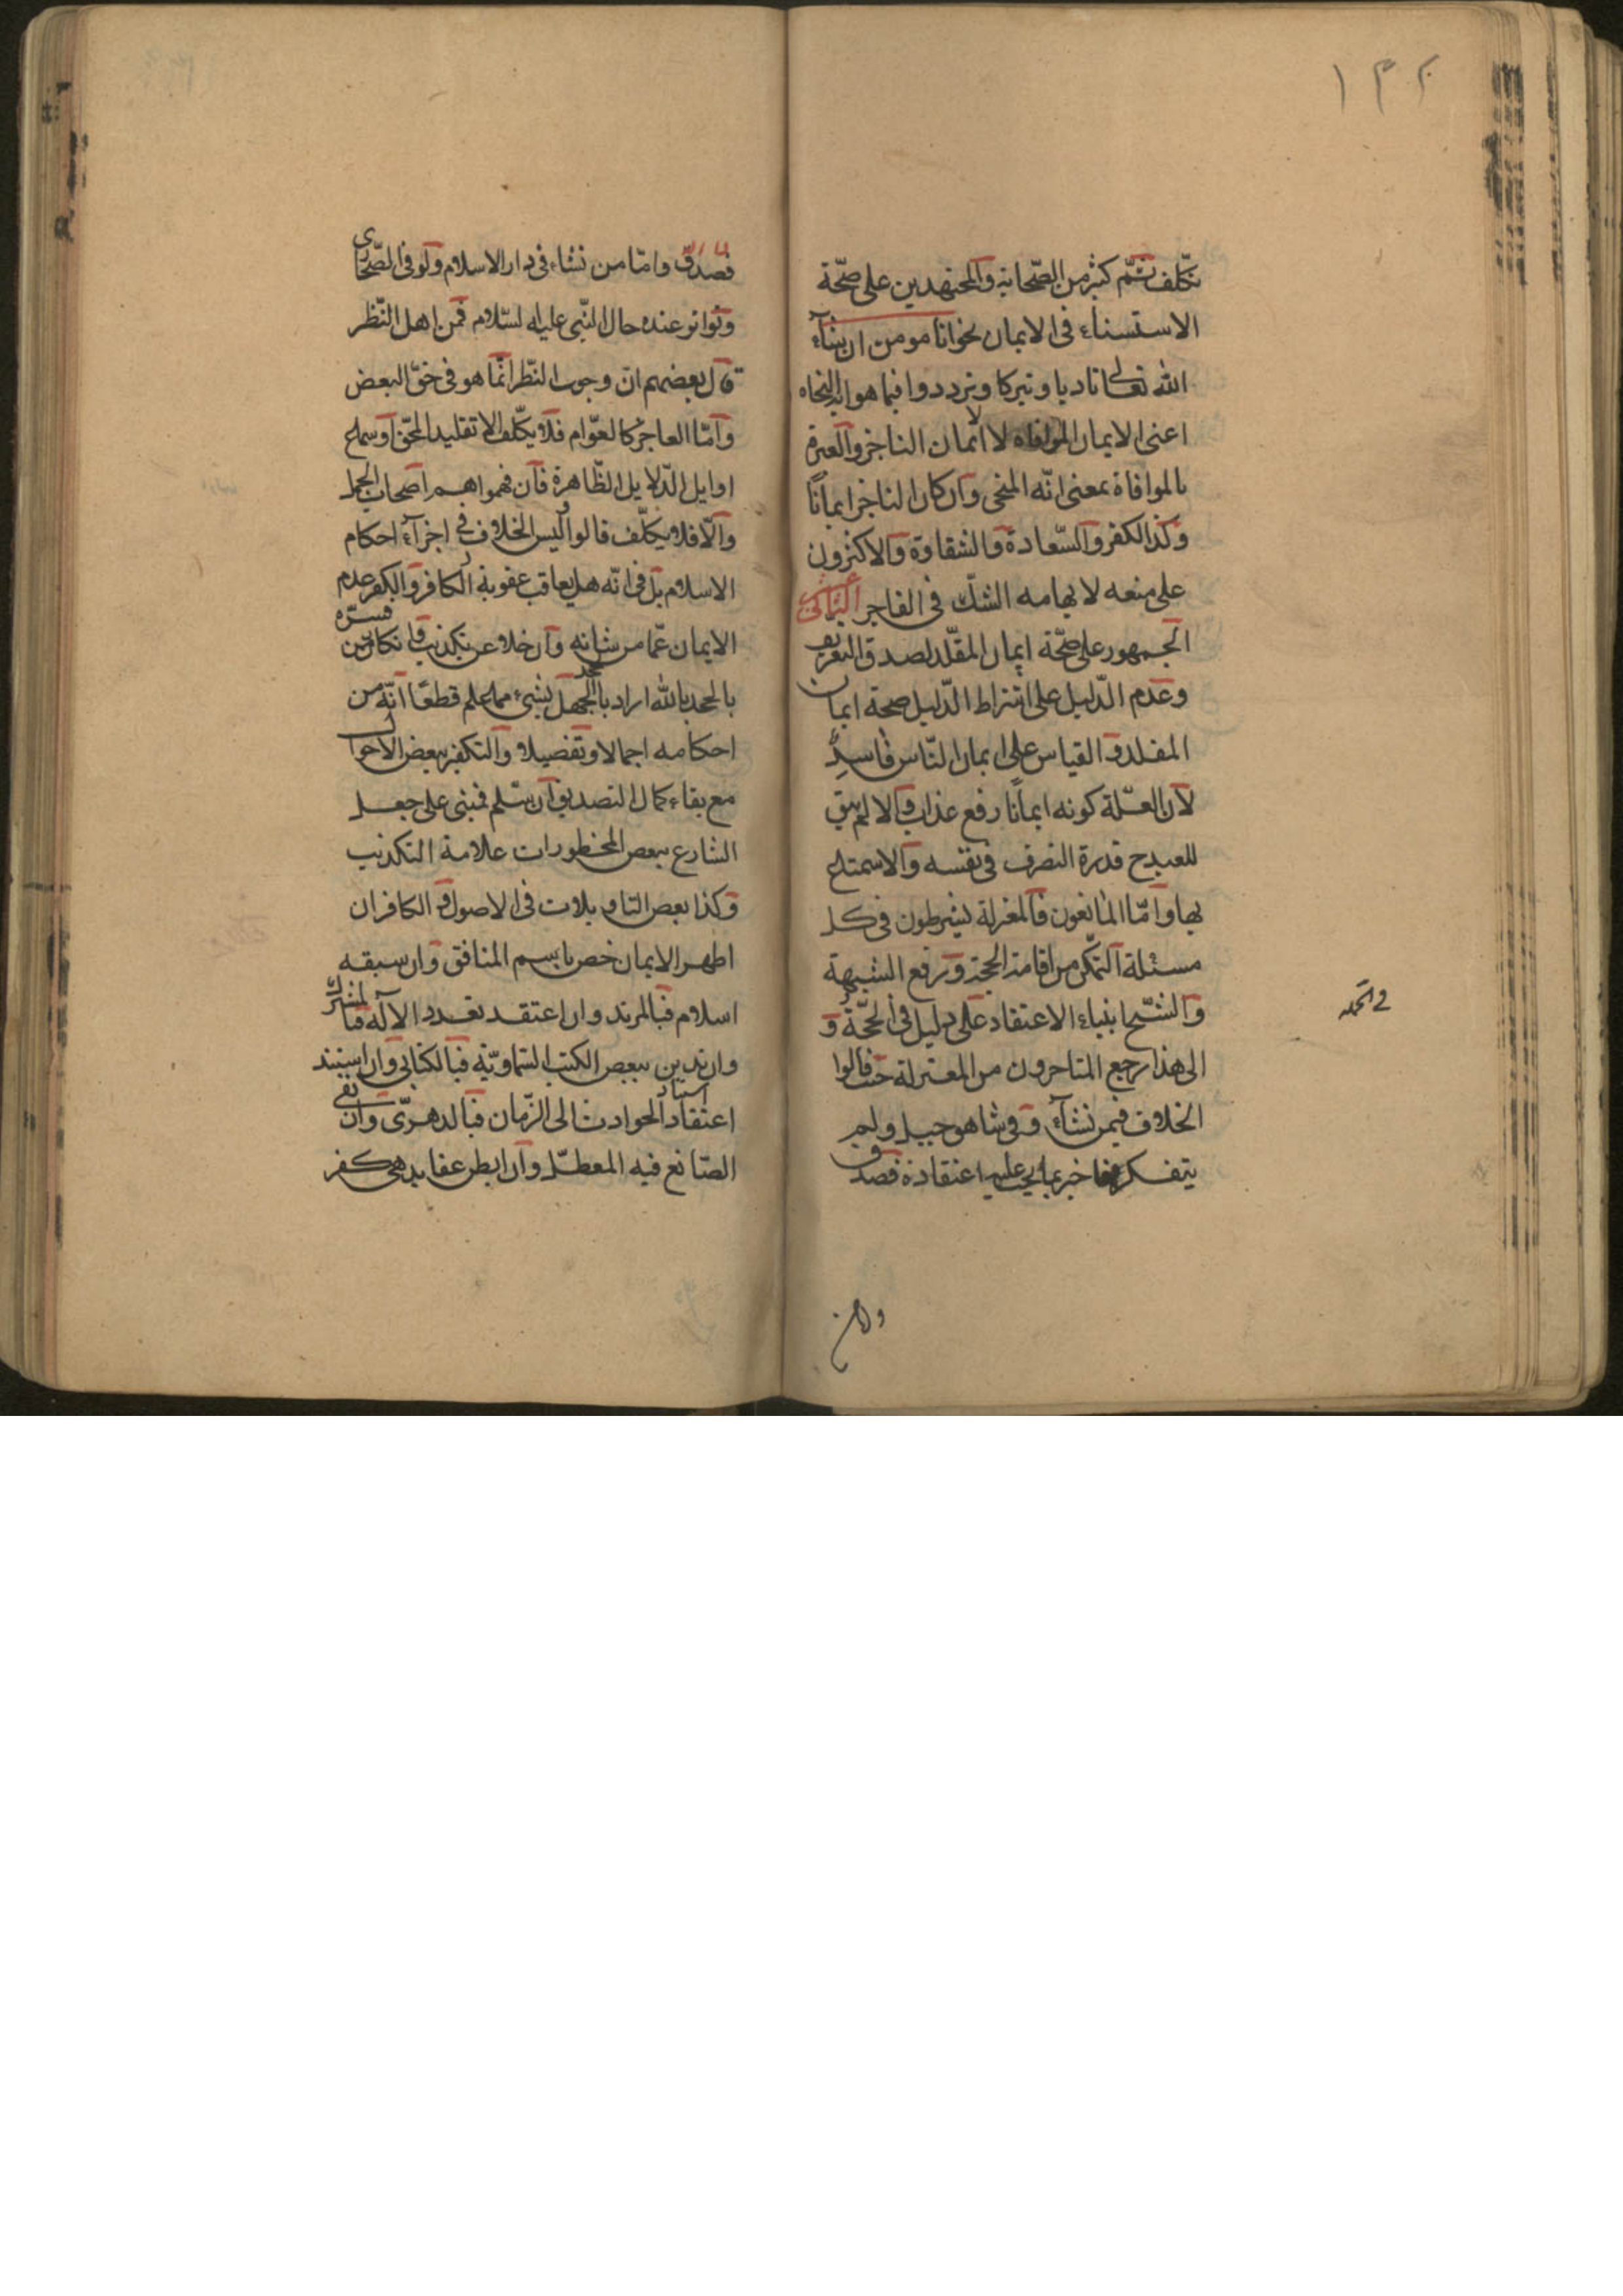 ١٣٢
تكلف ثم كثير من الصحابة والمجتهدين على صحة
الاستسناء فى الايمان نحو انا مومن ان شاء
الله تعالى تادبا وتبركا وترددوا فيما هو اية النجاه
اعنى الايمان الموافاه لا ايمان الناجز والعبرة
بالموافاة بمعنى انّه المنجى وان كان الناجز ايمانًا
وكذا الكفر والسّعادة والشقاوة والاكثرون
على منعه لايهامه الشكّ فى الفاجر
الجمهور على صحّة ايمان المقلّد لصدق التعريف
وعدم الدّليل على اشتراط الدّليل صحة ايمان
المقلد و القياس على ايمان النّاس فاسد
لان العلّة كونه ايمانًا رفع عذاب والا لم يبق
للعبد ح قدرة التصرف فى نفسه والاسمتاع
بها وامّا المانعون فالمعتزلة يشرطون فى كل
مسئلة التمكّن من اقامة الحجة ورفع الشبهة
والشّيخ ابنناء الاعتقاد على دليل فى الجملة و
فى الجمله
الى هذا رجع المتاخرون من المعتزلة حتى قالوا
الخلاف فيمن نشأ فى شاهق جبل ولم
يتفكر فاخبر بما يجب عليه اعتقاده فصدق
فصدق وامّا من نشاء فى دار الاسلام ولو فى الصّحارى
وتواتر عنده حال النّبى عليه السّلام فمن اهل النّظر
قال بعضهم ان وجوب النّظر انّما هو فى حقّ البعض
وامّا العاجز كالعوّام فلا يكلّف الا تقليد المحقّ او سماع
اوايل الدّلايل الظّاهرة فان فهموا هم اصحاب الجمل
والّا فلا يكلّف قالوا وليس الخلاف فى اجراء احكام
الاسلام بل فى انّه هل يعاقب عقوبة الكافر والكفر عدم
الايمان عمّا من شانه وان خلا عن تكذيب وانكار ومن فسّره
بالجحد بالله اراد بالجحد الجهل بشىء مما علم قطعًا انّه من
احكامه اجمالا وتفصيلا والتكفير ببعض الاحوال
مع بقاء كمال التصديق ان سلم فمبنى على جعل
الشارع ببعض المحظورات علامة التكذيب
وكذا بعض التاويلات فى الاصول و الكافر ان
اظهر الايمان خص باسم المنافق وان سبقه
اسلام فبالمرتد وان اعتقد تعدد الاله فبالمشرك
وان تدين ببعض الكتب السّماويّة فبالكتابى وان استند
اعتقاد اسناد الحوادث الى الزّمان فبالدهرّى وان نفى
الصّانع فيه المعطّل وان ابطن عقايد هى كفر